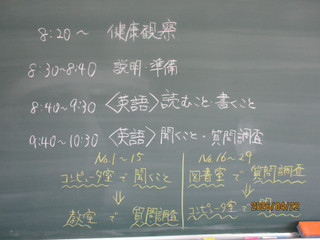 8:20〜 健康観察
8:30〜8:40 説明・準備
8:40〜9:30 〈英語〉読むこと・書くこと
9:40〜10:30 〈英語〉聞くこと・質問調査
No.1〜15
コンピュータ室で聞くこと
↓
教室で質問調査
No.16〜29
図書室で質問調査
↓
コンピュータ室で